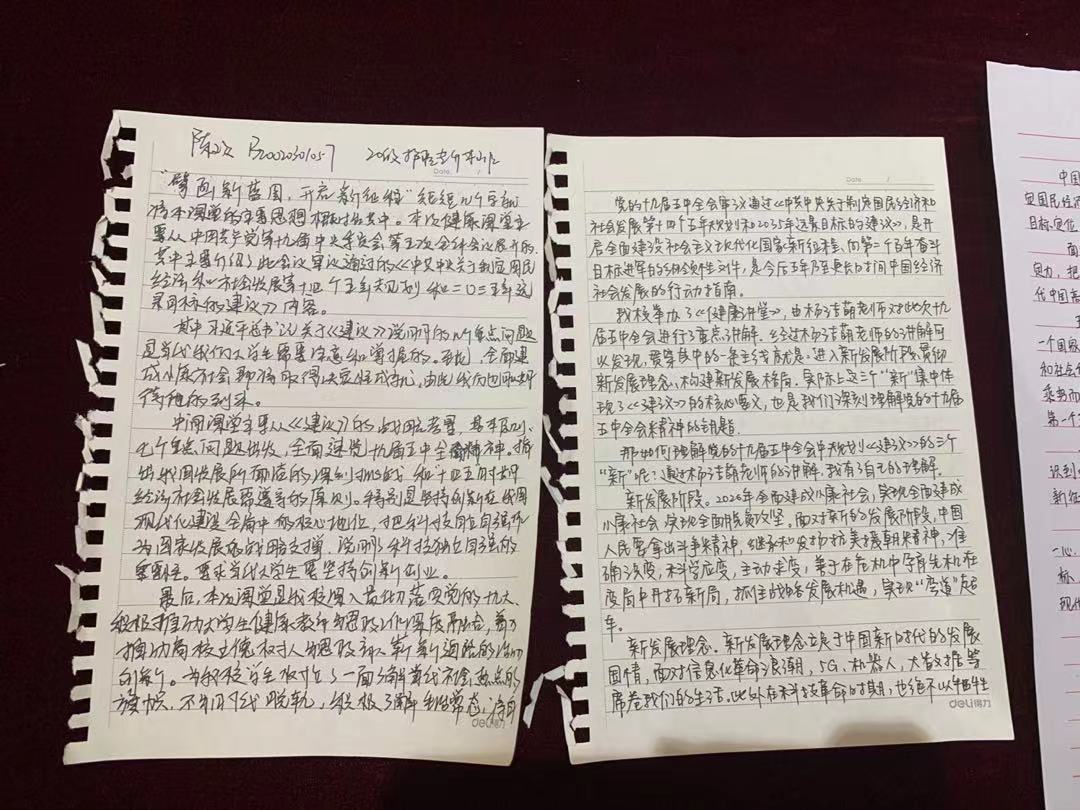 陈 B20020301057 20级护理专升本
Date /
"擘画新蓝图，开启新征程"短短几个字就
将本课堂的主要思想概括其中。本次健康课堂主
要从中国共产党第十九届中央委员会第五次全体会议展开的，
其中主要介绍了此会议审议通过的《中共中央关于制定国民
经济和社会发展第十四个五年规划和二〇三五年远
景目标的建议》内容。
其中习近平总书记关于《建议》说明的几个重点问题
是当代我们大学生需要注意和掌握的。
成小康社会即将取得决定性成就，由此我们也迎来
的到来。
中间课堂主要从《建议》的战略考量、基本
七个重点问题出发，全面速览十九届五中全会精神。指
出我国发展所面临的深刻挑战和十四五时期
经济社会发展需遵守的原则。特别是坚持创新在我国
现代化建设全局中的核心地位，把科技自立自强作
为国家发展的战略支撑，说明了科技独立自强的
重要性。要求当代大学生要坚持创新创业。
最后，本次课堂是我校深入贯彻落实党的十九大、
积极推动大学生健康教育与思政工作深度融合，着力
创新。为我校学生树立了一面
旗帜，不与时代脱轨，积极了解
deli得力
Date /
党的十九届五中全会审议通过《中共中央关于制定国民经济和
社会发展第十四个五年规划和2035年远景目标的建议》，是开
启全面建设社会主义现代化国家新征程、向第二个百年奋斗
目标进军的纲领性文件，是今后五年乃至更长时间中国经济
社会发展的行动指南。
我校举办了《健康讲堂》，由杨洁萌老师对此次十九
届五中全会进行了重点讲解。经过杨洁萌老师的讲解可
以发现，贯穿其中的一条主线就是：进入新发展阶段、贯彻
新发展理念、构建新发展格局。实际上这三个"新"集中体
现了《建议》的核心要义，也是我们深刻理解党的十九届
五中全会精神的钥匙。
那如何理解党的十九届五中全会中规划《建议》的三个
"新"呢？通过杨洁萌老师的讲解，我有了自己的理解。
新发展阶段。202年全面建成小康社会，实现全面建成
小康社会，实现全面脱贫攻坚。面对新的发展阶段，中国
人民要拿出斗争精神，继承和发扬抗美援朝精神，准
确识变，科学应变，主动求变，善于在危机中孕育先机，在
变局中开拓新局，抓住战略发展机遇，实现"弯道"超
车。
新发展理念。新发展理念立足于中国新时代的发展
国情，面对信息化革命浪潮，5G，机器人，大数据等
席卷我们的生活，此外在科技革命时期，也绝不以牺牲
deli得力
中国
定国民经济
目标定位
面
贡力，把
代中国
一个国家
和社会
乘势而
第一个
识到
新征
一心，
标，
现代